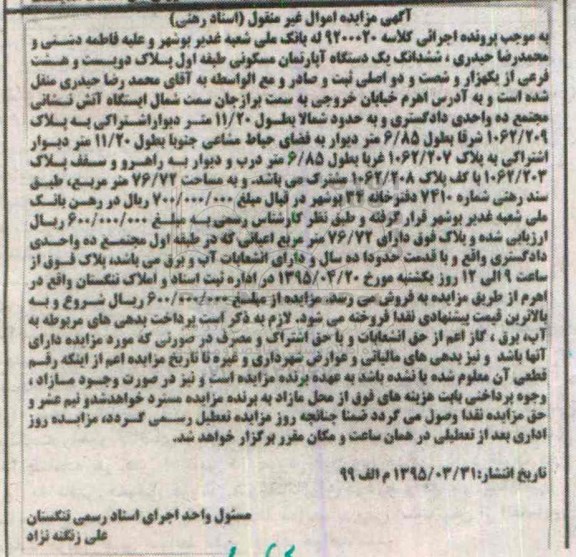 آگهی مزایده اموال غیر منقول (اسناد رهنی)
به موجب پرونده اجرائی کلاسه ۹۲۰۰۰۲۰ له بانک ملی شعبه غدیر بوشهر و علیه فاطمه دشتی و
محمدرضا حیدری ، ششدانگ یک دستگاه آپارتمان مسکونی طبقه اول پلاک دویست و هشت
فرعی از یکهزار و شصت و دو اصلی ثبت و صادر و مع الواسطه به آقای محمد رضا حیدری منتقل
شده است و به آدرس اهرم خیابان خروجی به سمت برازجان سمت شمال ایستگاه آتش نشانی
مجتمع ده واحدی دادگستری و به حدود شمالا بطول ۱۱/۲۰ متر دیواراشتراکی به پلاک
۱۰۶۲/۲۰۹ شرقا بطول ۶/۸۵ متر دیوار به فضای حیاط مشاعی جنوبا بطول ۱۱/۲۰ متر دیوار
اشتراکی به پلاک ۱۰۶۲/۲۰۷ غربا بطول ۶/۸۵ متر درب و دیوار به راهرو و سقف پلاک
۱۰۶۲/۲۰۳ با کف پلاک ۱۰۶۲/۲۰۸ مشترک می باشد. و به مساحت ۷۶/۷۲ متر مربع، طبق
سند رهنی شماره ۷۴۱۰ دفترخانه ۳۴ بوشهر در قبال مبلغ ۷۰۰/۰۰۰/۰۰۰ ریال در رهن بانک
ملی شعبه غدیر بوشهر قرار گرفته و طبق نظر کارشناس رسمی به مبلغ ۶۰۰/۰۰۰/۰۰۰ ریال
ارزیابی شده و پلاک فوق دارای ۷۶/۷۲ متر مربع اعیانی که در طبقه اول مجتمع ده واحدی
دادگستری واقع و با قدمت حدودا ده سال و دارای انشعابات آب و برق می باشد، پلاک فوق از
ساعت ۹ الی ۱۲ روز یکشنبه مورخ ۱۳۹۵/۰۴/۲۰ در اداره ثبت اسناد و املاک تنگستان واقع در
اهرم از طریق مزایده به فروش می رسد. مزایده از مبلغ ۶۰۰/۰۰۰/۰۰۰ ریال شروع و به
بالاترین قیمت پیشنهادی نقدا فروخته می شود. لازم به ذکر است پرداخت بدهی های مربوطه به
آب، برق ، گاز اعم از حق انشعابات و یا حق اشتراک و مصرف در صورتی که مورد مزایده دارای
آنها باشد و نیز بدهی های مالیاتی و عوارض شهرداری و غیره تا تاریخ مزایده اعم از اینکه رقم
قطعی آن معلوم شده یا نشده باشد به عهده برنده مزایده است و نیز در صورت وجود مازاد ،
وجوه پرداختی بابت هزینه های فوق از محل مازاد به برنده مزایده مسترد خواهدشدو نیم عشر و
حق مزایده نقدا وصول می گردد ضمنا چنانچه روز مزایده تعطیل رسمی گردد، مزایده روز
اداری بعد از تعطیلی در همان ساعت و مکان مقرر برگزار خواهد شد.
تاریخ انتشار: ۱۳۹۵/۰۳/۳۱ م الف ۹۹
مسئول واحد اجرای اسناد رسمی تنگستان
علی زنگنه نژاد